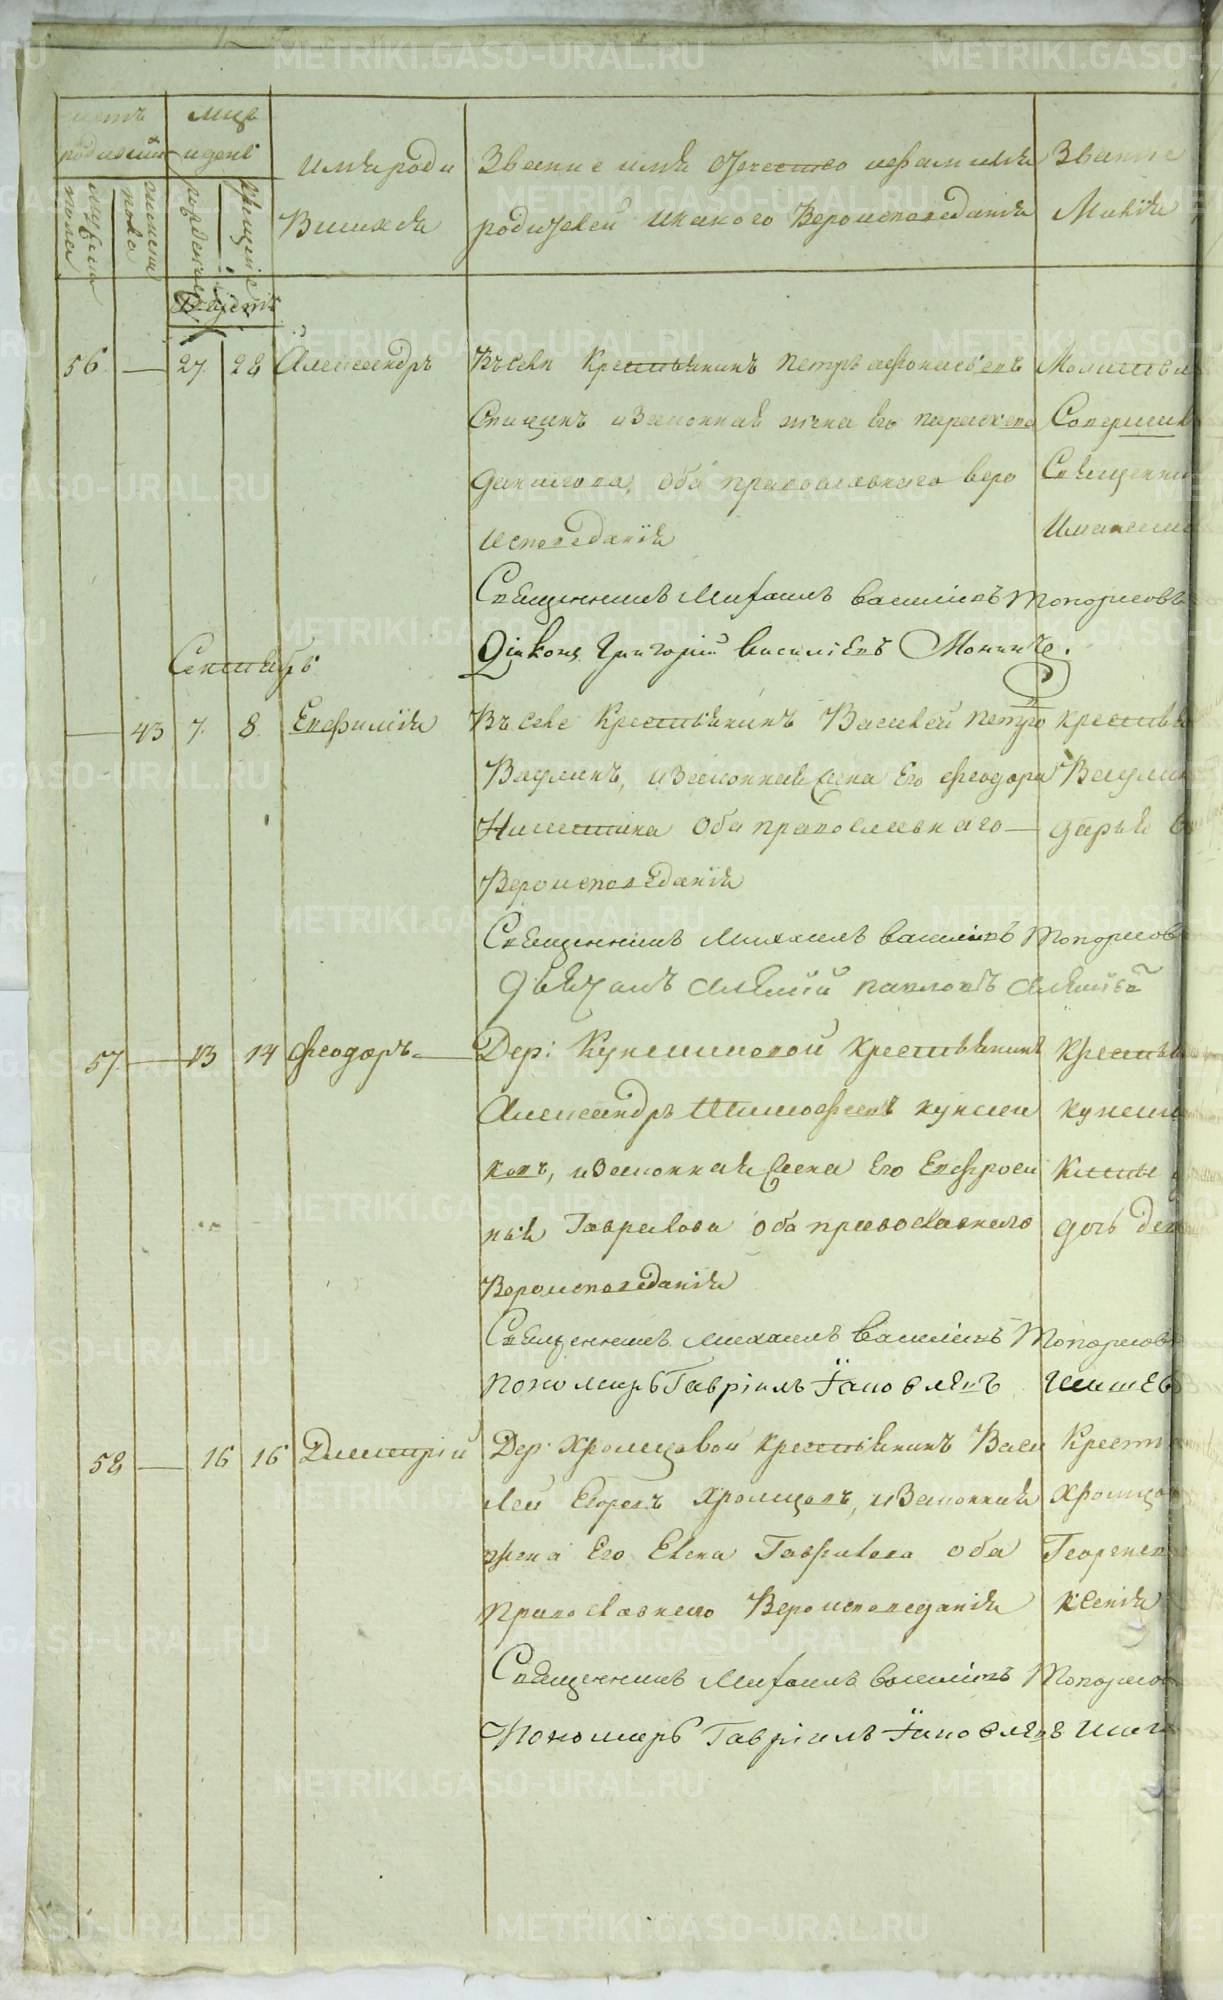 METRIKI.GASO-URAL.RU
счетъ родившихся
мѣсяцъ и день
мужеска пола
женска пола
рожденія
крещенія
Имя роди
вшихся
Званіе имя отчество и фамилия
родителей и какого вероисповеданія
Званіе
Августъ
56 — 27 28 Александръ
Въ селе Крестьянинъ Петръ Афонасьевъ
Спицинъ и Законная жена его Парасковья
Данилова, оба православнаго веро
исповеданія
Молитвы
Совершил
Священни
Священникъ Михаилъ Васильевъ Топорковъ
Діаконъ Григорій Василіевъ Мочинъ.
Сентябрь
— 43 7 8 Евфимія
Въ селе Крестьянинъ Василей Петро
Ваулинъ, и Законная Жена Его Феодора
Никитина Оба православнаго —
Вероисповеданія
Крестьян
Ваулин
Дарья
Священникъ Михаилъ Васильевъ Топорков
Дьячокъ Алексій Павловъ
57 — 13 14 Феодоръ
Дер: Куксинской Крестьянинъ
Александръ Тимофеевъ
и Законная Жена Его Евфроси
нья Гаврилова оба православнаго
Вероисповеданія
Крестья
дочь
Священникъ Михаилъ Васильевъ Топорков
Пономарь Гавріилъ Іаковлевъ
58 — 16 16 Димитрій
Дер: Хромцовой Крестьянинъ Васи
лей Егоровъ Хромцовъ, и Законная
жена Его Елена Гаврилова оба
Православнаго Вероисповеданія
Крестья
Хромцо
Георгіев
Ксенія
Священникъ Михаилъ Васильевъ Топорков
Пономарь Гавріилъ Іаковлевъ